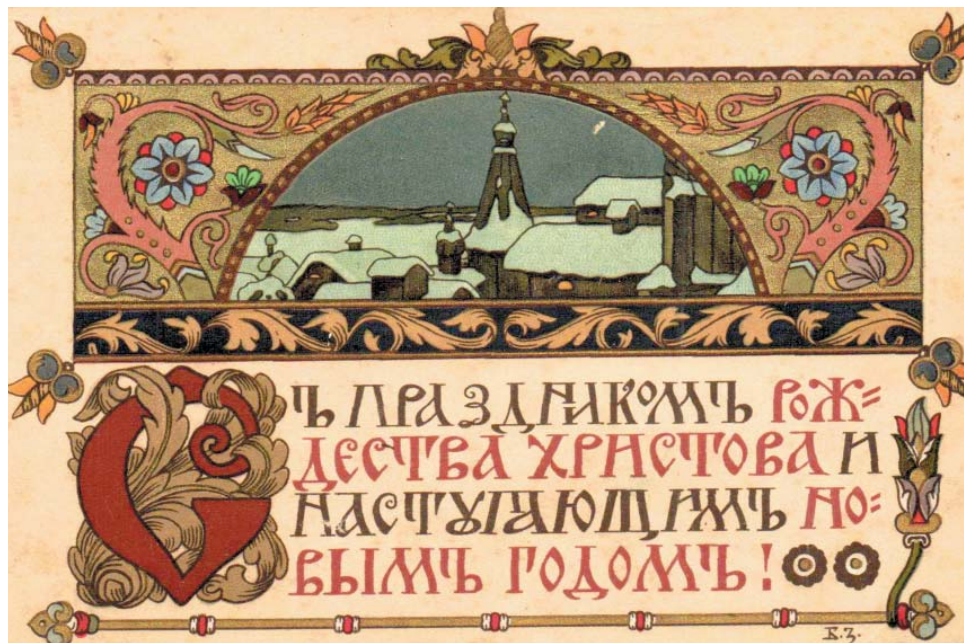 Съ праздникомъ Рож=
дества Христова и
наступающимъ Но=
вымъ Годомъ!
В.З.